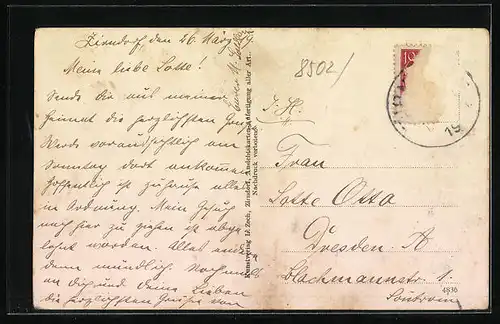 Zirndorf, den 26. März 19
Meine liebe Lotte!
Sende Dir aus meiner
Heimat die herzlichsten Grüße
Werde voraussichtlich am
Sonntag dort ankommen
Hoffentlich ist zuhause alles
in Ordnung. Mein Gesuch
nach hier zu ziehen ist abge
lehnt worden. Alles
dann mündlich. Nochmals
an Dich und deine Lieben
die herzlichsten Grüße von
Kunstverlag H. Zech, Zirndorf, Ansichtskarten-Anfertigung aller Art.
Nachdruck verboten
8502/
Frau
Lotte Otto
Dresden. A.
Blochmannstr. 1.
Souterrain
4836
19